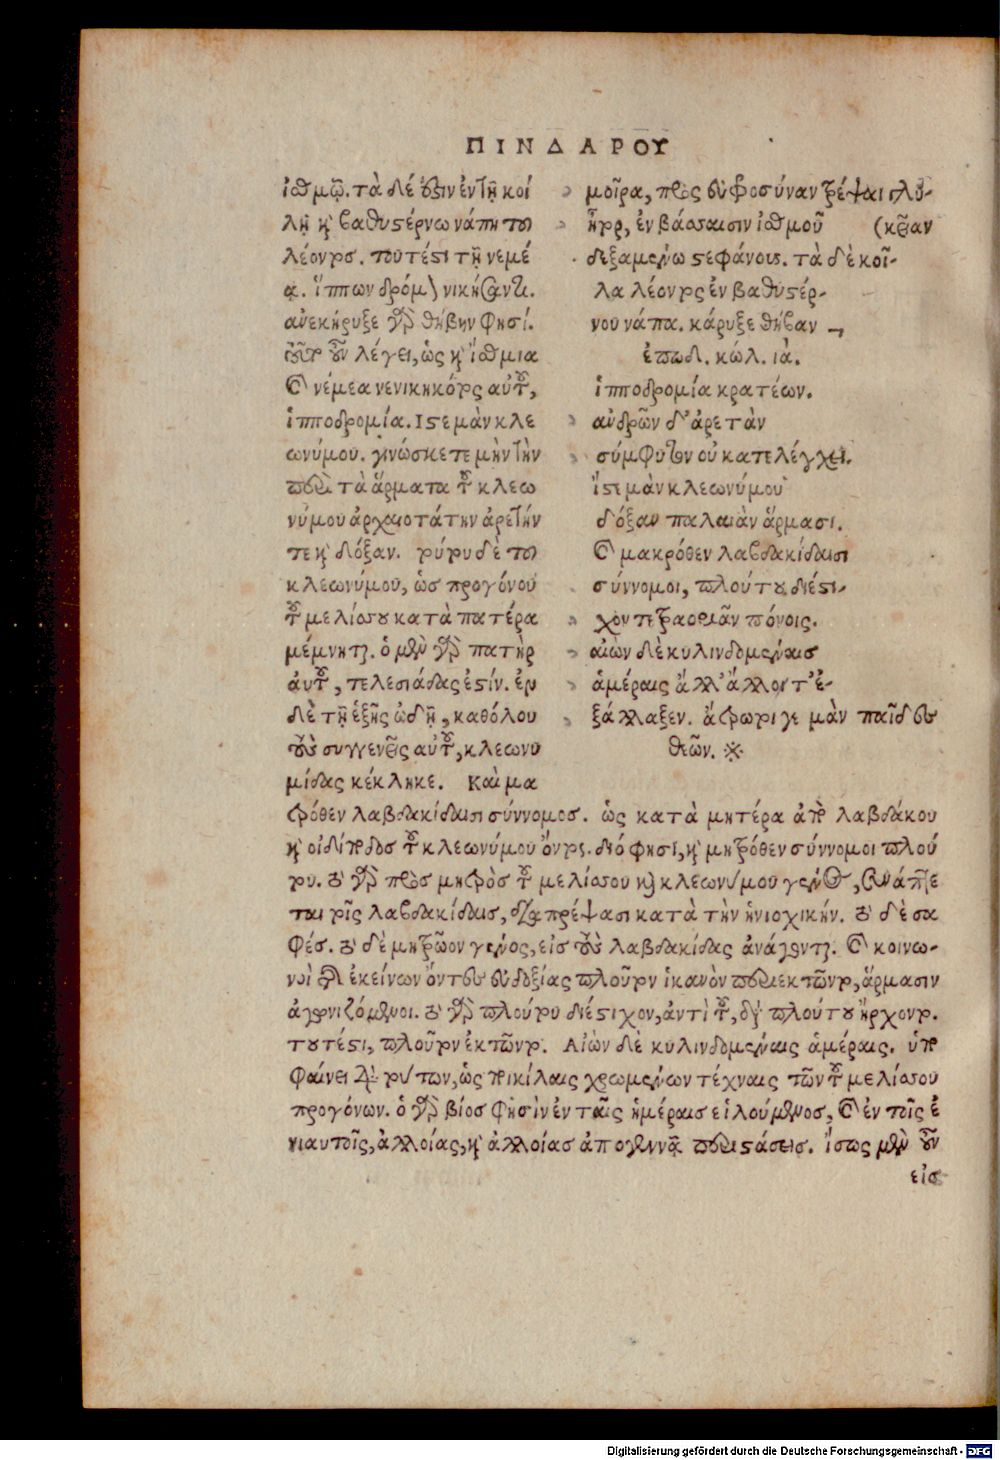 ΠΙΝΔΑΡΟΥ
ἰσθμῷ. τὰ δέ ὅστιν ἐν τῇ κοί
λῃ καὶ βαθυστέρνω νάπῃ τοῦ
λέοντος. τουτέστι τῇ νεμέ
ᾳ. ἵππων δρόμῳ νικήσαντι.
ἀνεκήρυξε γὰρ θήβην φησί.
τοῦτο οὖν λέγει, ὡς καὶ ἴσθμια
καὶ νέμεα νενικηκότος αὐτοῦ,
ἱπποδρομία. Ιστε μὰν κλε
ωνύμου. γινώσκετε μὴν τὴν
περὶ τὰ ἅρματα τοῦ κλεω
νύμου ἀρχαιοτάτην ἀρετήν
τε καὶ δόξαν. τούτου δὲ τοῦ
κλεωνύμου, ὡς προγόνου
τοῦ μελίσσου κατὰ πατέρα
μέμνηται. ὁ μὲν γὰρ πατὴρ
αὐτοῦ, τελεσιάδας ἐστίν. ἐν
δὲ τῇ ἑξῆς ᾠδῇ, καθόλου
τοὺς συγγενεῖς αὐτοῦ, κλεωνυ
μίδας κέκληκε. Καὶ μα
μοῖρα, πρὸς εὐφροσύναν τρέψαι γλυ-
ἦτορ, ἐν βάσσαισιν ἰσθμοῦ (κεῖαν
δεξαμένῳ στεφάνους. τὰ δὲ κοί-
λα λέοντος ἐν βαθυστέρ-
νου νάπα. κάρυξε θήβαν
ἐπωδ. κώλ. ιά.
ἱπποδρομία κρατέων.
ἀνδρῶν δ' ἀρετὰν
σύμφυτον οὐ κατελέγχει.
ἴστε μὰν κλεωνύμου
δόξαν παλαιὰν ἅρμασι.
καὶ μακρόθεν λαβδακίδαισι
σύννομοι, πλούτου διέστι-
χον τετραοριᾶν πόνοις.
αἰὼν δὲ κυλινδομέναις
ἁμέραις ἄλλ' ἄλλοτ' ἐ-
ξάλλαξεν. ἄτρωτοί γε μὰν παῖδες
θεῶν. ※
τρόθεν λαβδακίδαισι σύννομος. ὡς κατὰ μητέρα ἀπὸ λαβδάκου
καὶ οἰδίποδος τοῦ κλεωνύμου ὄντος. διό φησι, καὶ μητρόθεν σύννομοι πλού
του. τὸ γὰρ πρὸς μητρὸς τοῦ μελίσσου καὶ κλεωνύμου γένος, συνάπτε
ται τοῖς λαβδακίδαις, διαπρέψασι κατὰ τὴν ἡνιοχικήν. τὸ δὲ σα
φές. τὸ δὲ μητρῷον γένος, εἰς τοὺς λαβδακίδας ἀνάγονται. καὶ κοινω-
νοὶ διὰ ἐκείνων ὄντες εὐδοξίας πλοῦτον ἱκανὸν περιεκτῶντο, ἅρμασιν
ἀγωνιζόμενοι. τὸ γὰρ πλούτου διέστιχον, ἀντὶ τοῦ, διὰ πλούτου ἤρχοντο.
τουτέστι, πλοῦτον ἐκτῶντο. Αἰὼν δὲ κυλινδομέναις ἁμέραις. ὑπο
φαίνει διὰ τούτων, ὡς ποικίλαις χρωμένων τέχναις τῶν τοῦ μελίσσου
προγόνων. ὁ γὰρ βίος φησὶν ἐν ταῖς ἡμέραις εἱλούμενος, καὶ ἐν τοῖς ἐ
νιαυτοῖς, ἀλλοίας, καὶ ἀλλοίας ἀπογεννᾷ περιστάσεις. ἴσως μὲν οὖν
εἰς
Digitalisierung gefördert durch die Deutsche Forschungsgemeinschaft - DFG